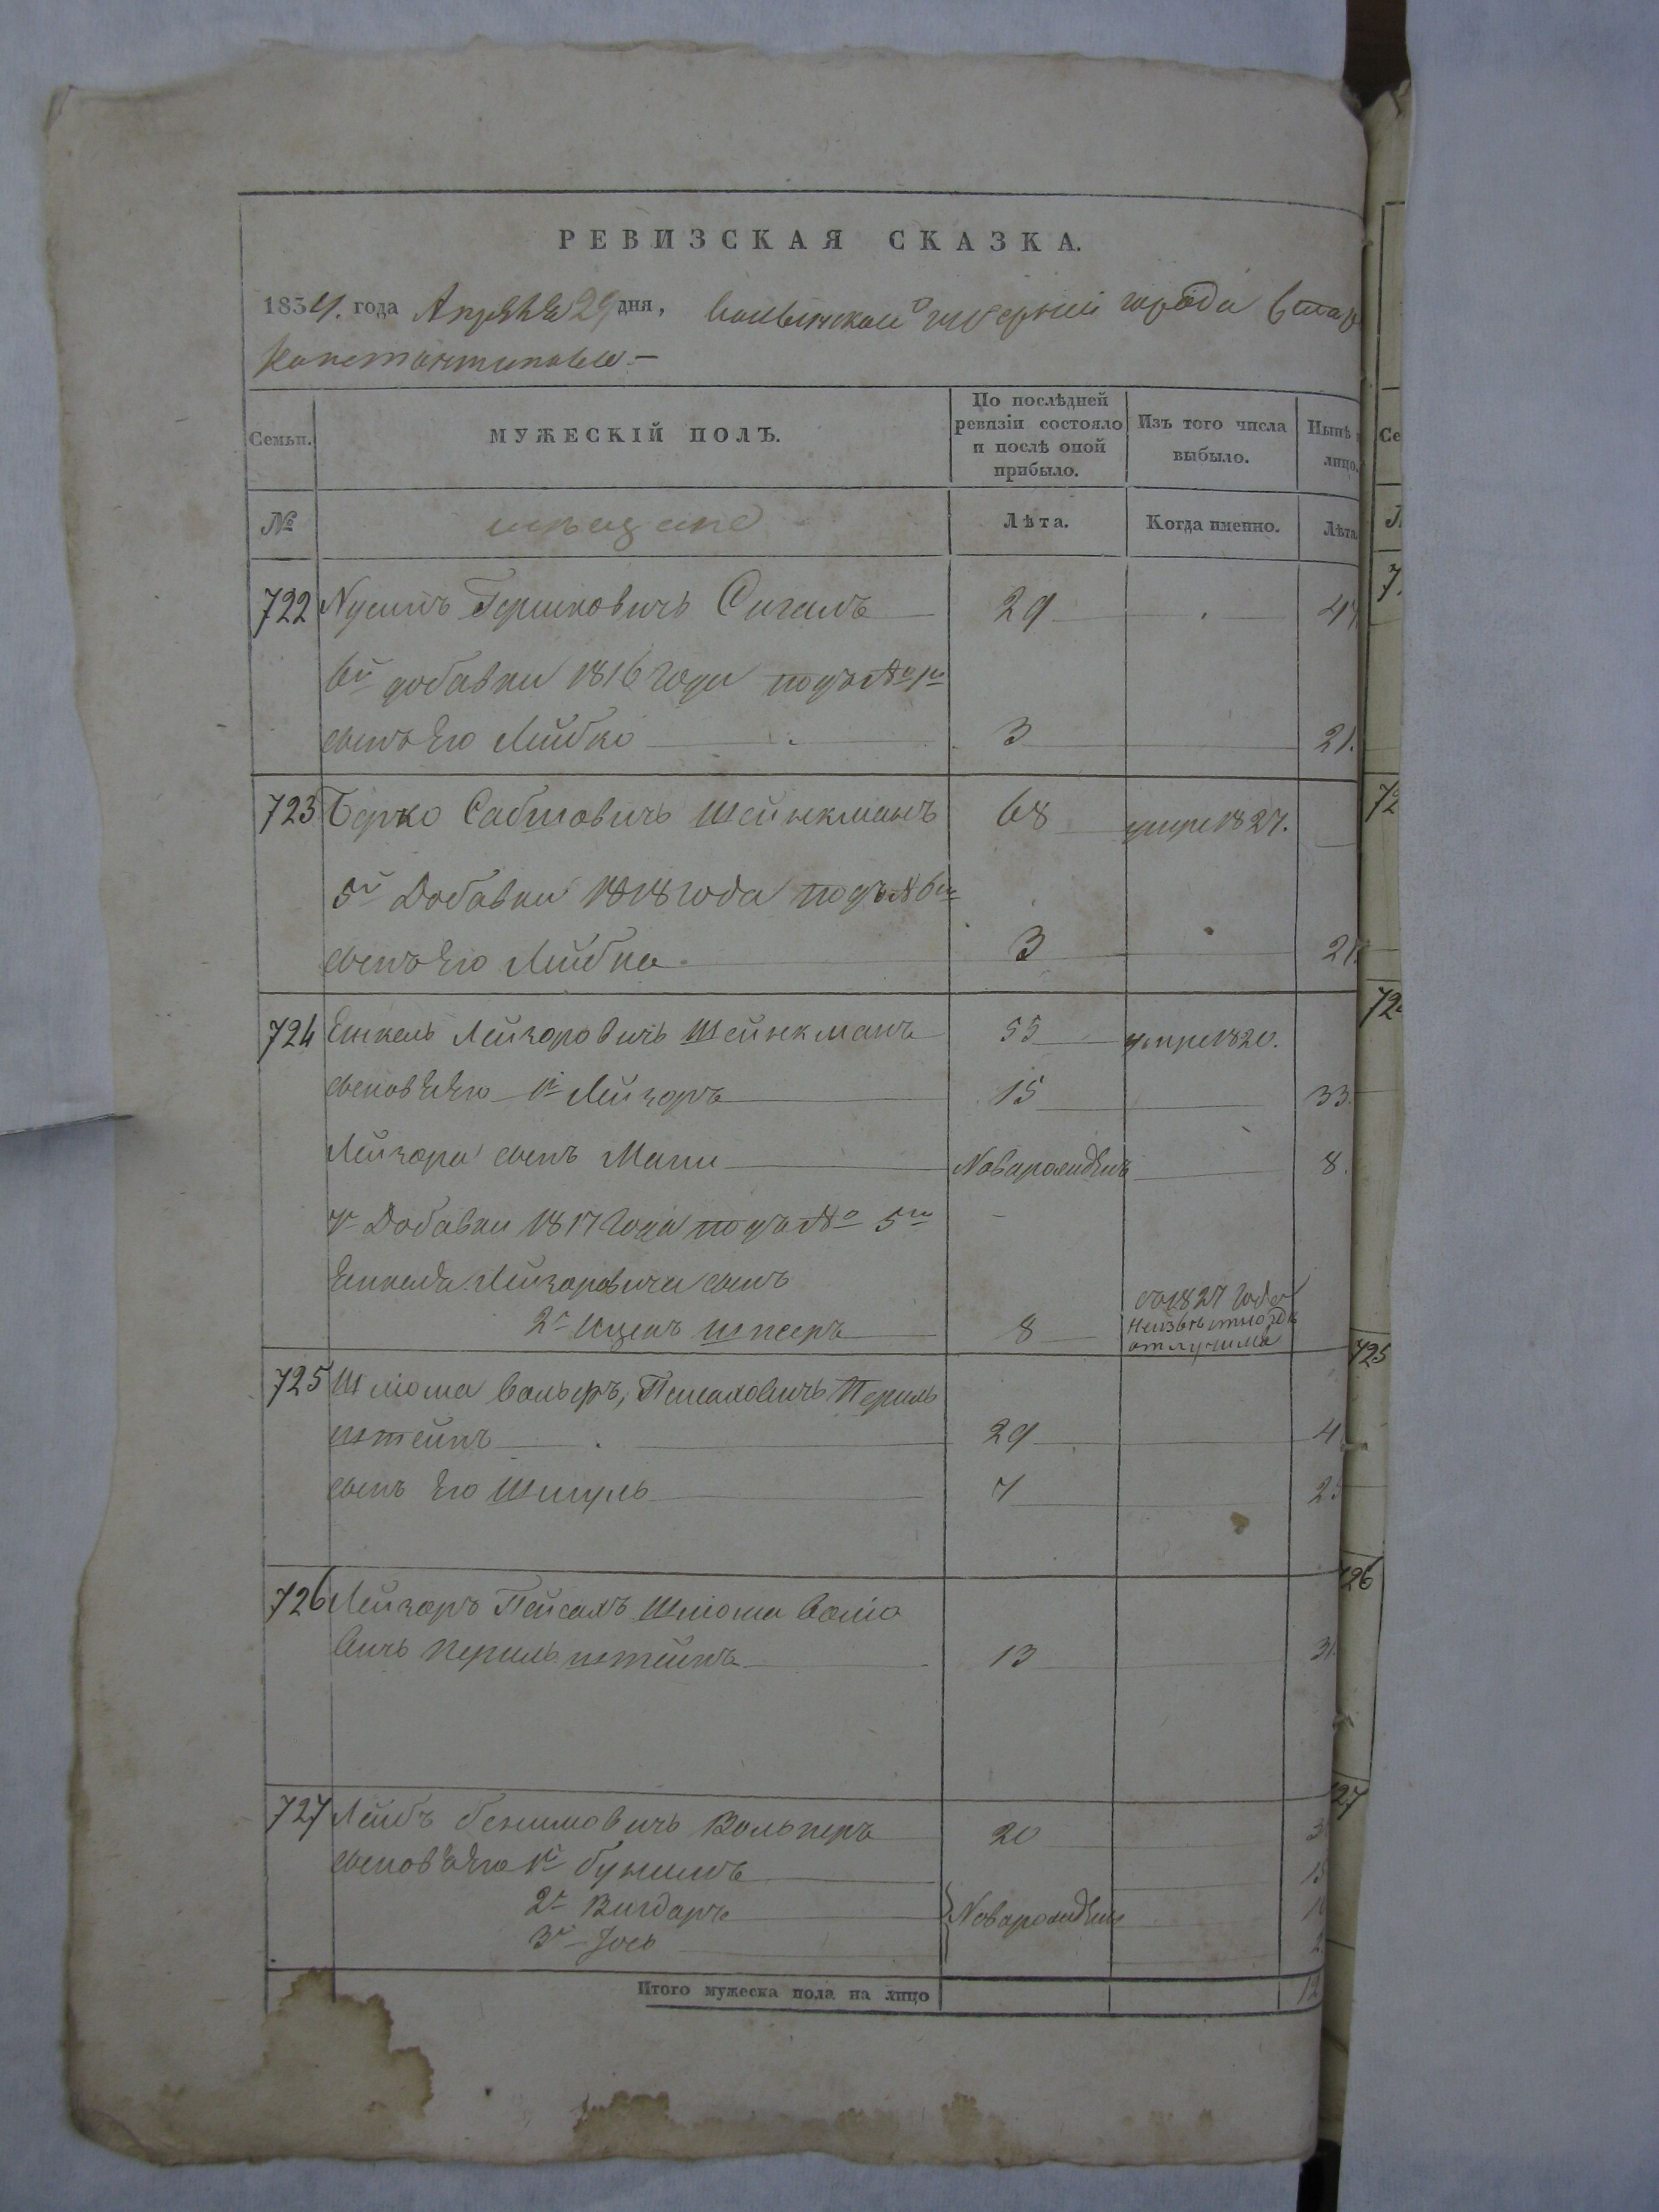 РЕВИЗСКАЯ СКАЗКА.
1834. года Апрѣля 29 дня, Волынской губерніи города Старо
Константинова.—
Семьи.
МУЖЕСКІЙ ПОЛЪ.
По послѣдней ревизіи состояло и послѣ оной прибыло.
Изъ того числа выбыло.
Нынѣ
лицо.
№
мѣщане
Лѣта.
Когда именно.
Лѣта
722 Нусинъ Гершковичъ Сигалъ 29
добавки 1816 года подъ №
сынъ Его Лейбко 3 21.
723 Берко Сабшовичъ Шейнкманъ 68 умре 1827.
5й Добавки 1818 года подъ №
сынъ Его Лейбка 3 21
724 Енкель Лейзоровичъ Шейнкманъ 55 умре 1820.
сыновья Его 1й Лейзоръ 15 33.
Лейзора сынъ Мати Новорожденъ 8.
Добавки 1817 года подъ № 5м
Енкеля Лейзоровича сынъ
2й Ицекъ 8 съ 1827 года
неизвѣстно гдѣ
отлучился
725 Шлиома Вольфъ, Пейсаховичъ Перель
штейнъ 29 4
сынъ Его Шмуль 7 2
726 Лейзоръ Пейсахъ Шлиома Вольо
вичъ Перельштейнъ 13 31.
727 Лейбъ Вольперъ 20 3
сыновья Его 1й Бунимъ
2й Вигдоръ Новорожденъ
3й Iось 2
Итого мужеска пола на лицо 12